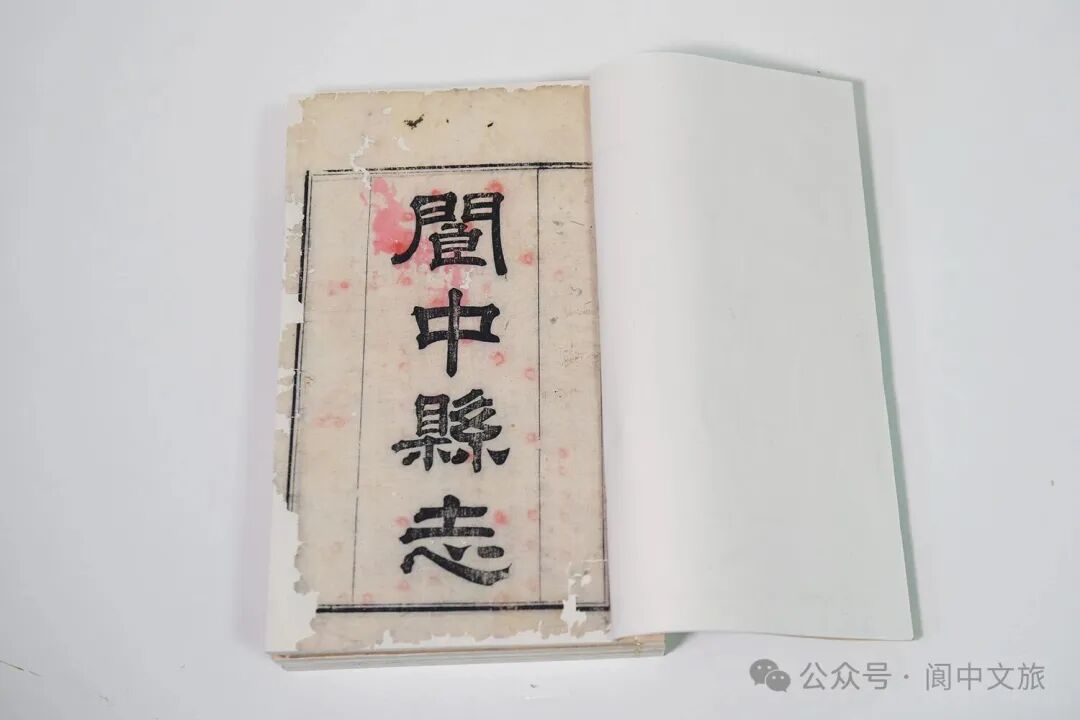 閬中縣志
公众号·阆中文旅